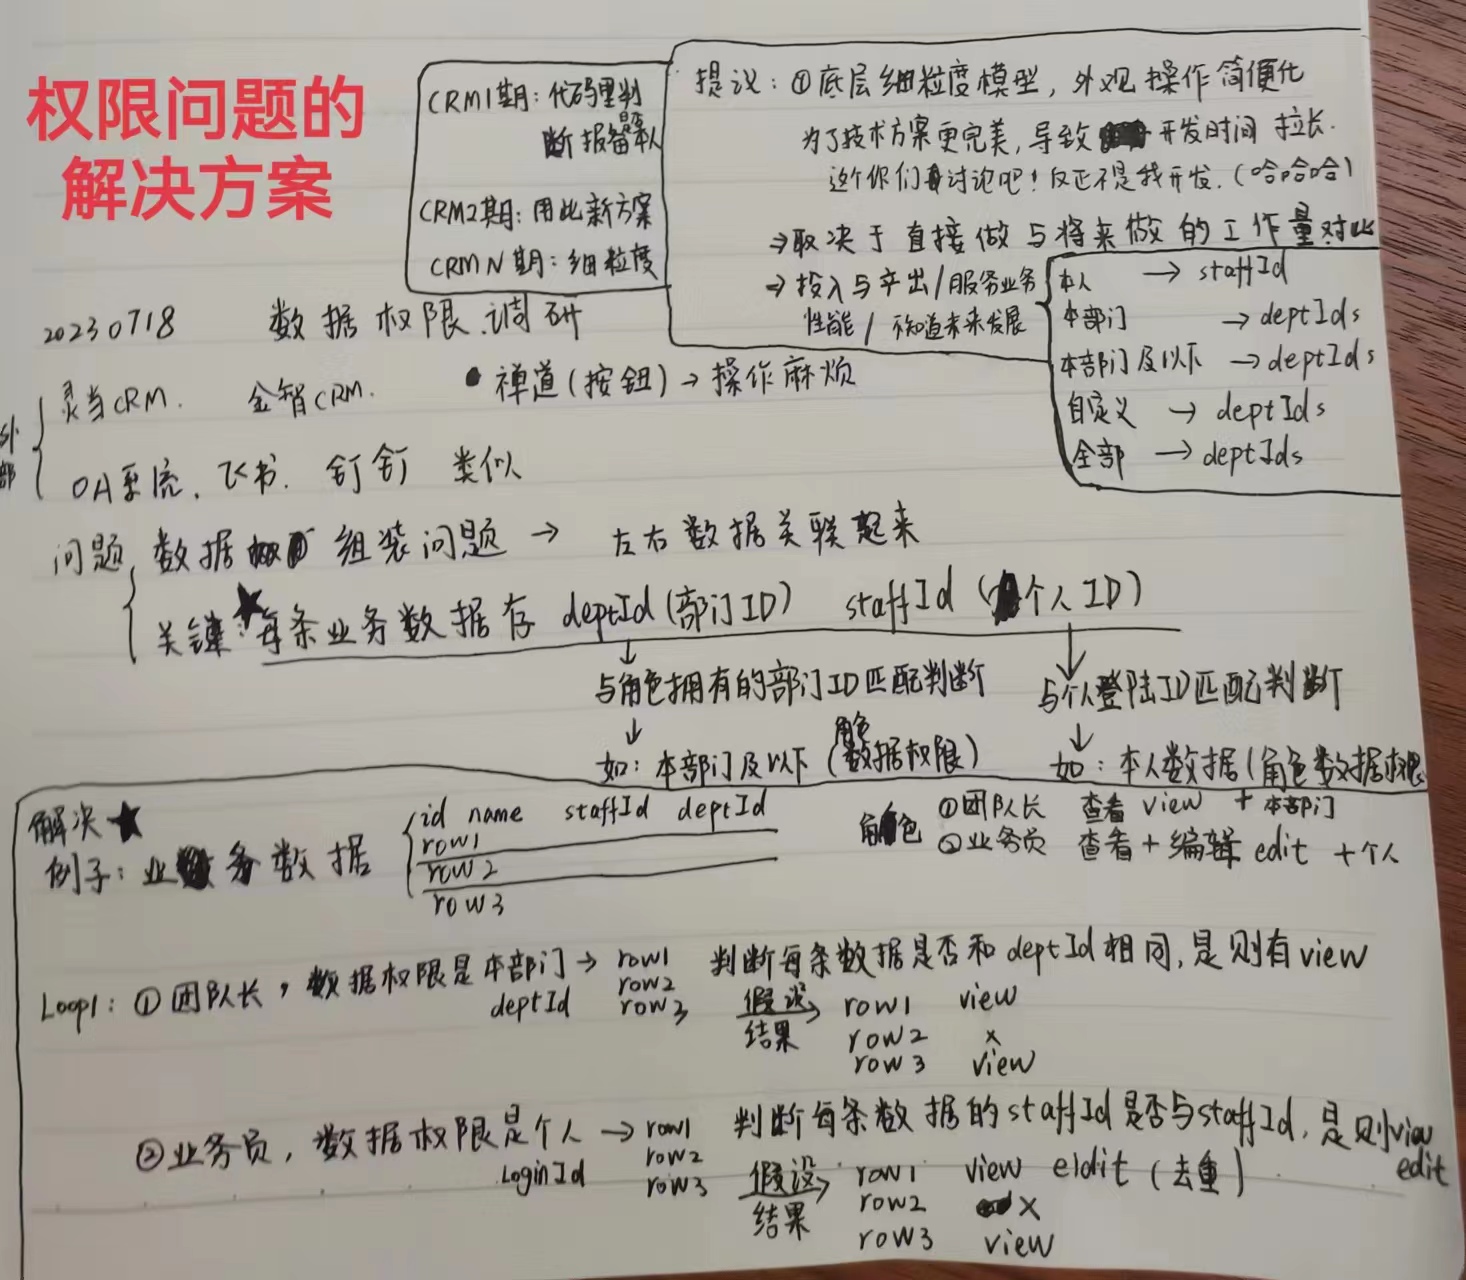 权限问题的
解决方案
CRM1期：代码里判
断报备是否本人
CRM2期：用此新方案
CRM N期：细粒度
提议：①底层细粒度模型，外观操作简便化
为了技术方案更完美，导致开发时间拉长.
这个你们再讨论吧！反正不是我开发.（哈哈哈）
→取决于直接做与将来做的工作量对比
→投入与产出/服务业务
性能/不知道未来发展
本人 → staffId
本部门 → deptIds
本部门及以下 → deptIds
自定义 → deptIds
全部 → deptIds
20230718 数据权限调研
外部
灵当CRM. 金智CRM. • 禅道(按钮)→操作麻烦
OA系统. 飞书. 钉钉 类似
问题 数据组装问题 → 左右数据关联起来
关键★：每条业务数据存 deptId(部门ID) staffId (个人ID)
↓ ↓
与角色拥有的部门ID匹配判断 与个人登陆ID匹配判断
↓ ↓
如：本部门及以下（角色数据权限） 如：本人数据(角色数据权限
解决★
例子：业务数据
id name staffId deptId
row1
row2
row3
角色 ①团队长 查看 view + 本部门
②业务员 查看+编辑 edit +个人
Loop1：①团队长，数据权限是本部门→ row1 判断每条数据是否和deptId相同,是则有view
deptId row2
row3 假设结果→ row1 view
row2 ×
row3 view
②业务员，数据权限是个人 → row1 判断每条数据的staffId是否与staffId，是则view
LoginId row2 edit
row3 假设结果→ row1 view eldit (去重)
row2 ×
row3 view